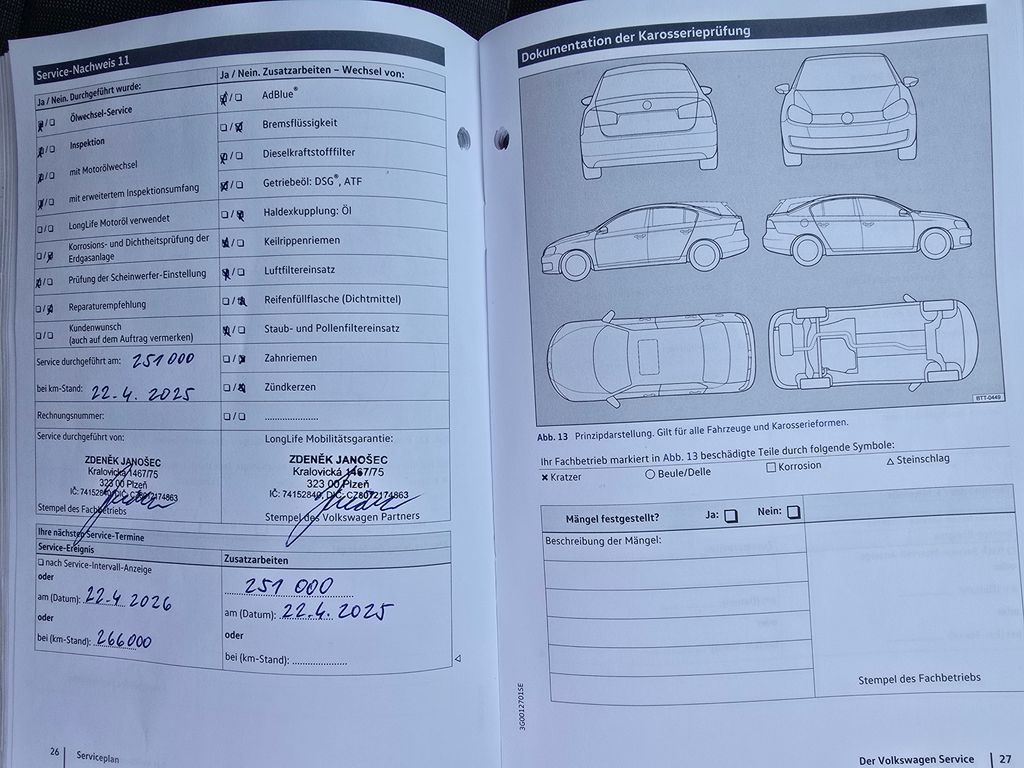 Service-Nachweis 11
Ja / Nein. Durchgeführt wurde:
Ölwechsel-Service
Inspektion
mit Motorölwechsel
mit erweitertem Inspektionsumfang
LongLife Motoröl verwendet
Korrosions- und Dichtheitsprüfung der
Erdgasanlage
Prüfung der Scheinwerfer-Einstellung
Reparaturempfehlung
Kundenwunsch
(auch auf dem Auftrag vermerken)
Service durchgeführt am: 251 000
bei km-Stand: 22.4. 2025
Rechnungsnummer:
Service durchgeführt von:
ZDENĚK JANOŠEC
Kralovická 1467/75
323 00 Plzeň
IČ: 74152840, DIČ: CZ8012174863
Stempel des Fachbetriebs
Ja / Nein. Zusatzarbeiten – Wechsel von:
AdBlue®
Bremsflüssigkeit
Dieselkraftstofffilter
Getriebeöl: DSG®, ATF
Haldexkupplung: Öl
Keilrippenriemen
Luftfiltereinsatz
Reifenfüllflasche (Dichtmittel)
Staub- und Pollenfiltereinsatz
Zahnriemen
Zündkerzen
LongLife Mobilitätsgarantie:
ZDENĚK JANOŠEC
Kralovická 1467/75
323 00 Plzeň
IČ: 74152840, DIČ: CZ8012174863
Stempel des Volkswagen Partners
Ihre nächsten Service-Termine
Service-Ereignis
nach Service-Intervall-Anzeige
oder
am (Datum): 22.4 2026
oder
bei (km-Stand): 266000
Zusatzarbeiten
251 000
am (Datum): 22.4. 2025
oder
bei (km-Stand):
26 Serviceplan
Dokumentation der Karosserieprüfung
BTT-0449
Abb. 13 Prinzipdarstellung. Gilt für alle Fahrzeuge und Karosserieformen.
Ihr Fachbetrieb markiert in Abb. 13 beschädigte Teile durch folgende Symbole:
Kratzer Beule/Delle Korrosion Steinschlag
Mängel festgestellt? Ja: Nein:
Beschreibung der Mängel:
Stempel des Fachbetriebs
3G0012701SE
Der Volkswagen Service 27